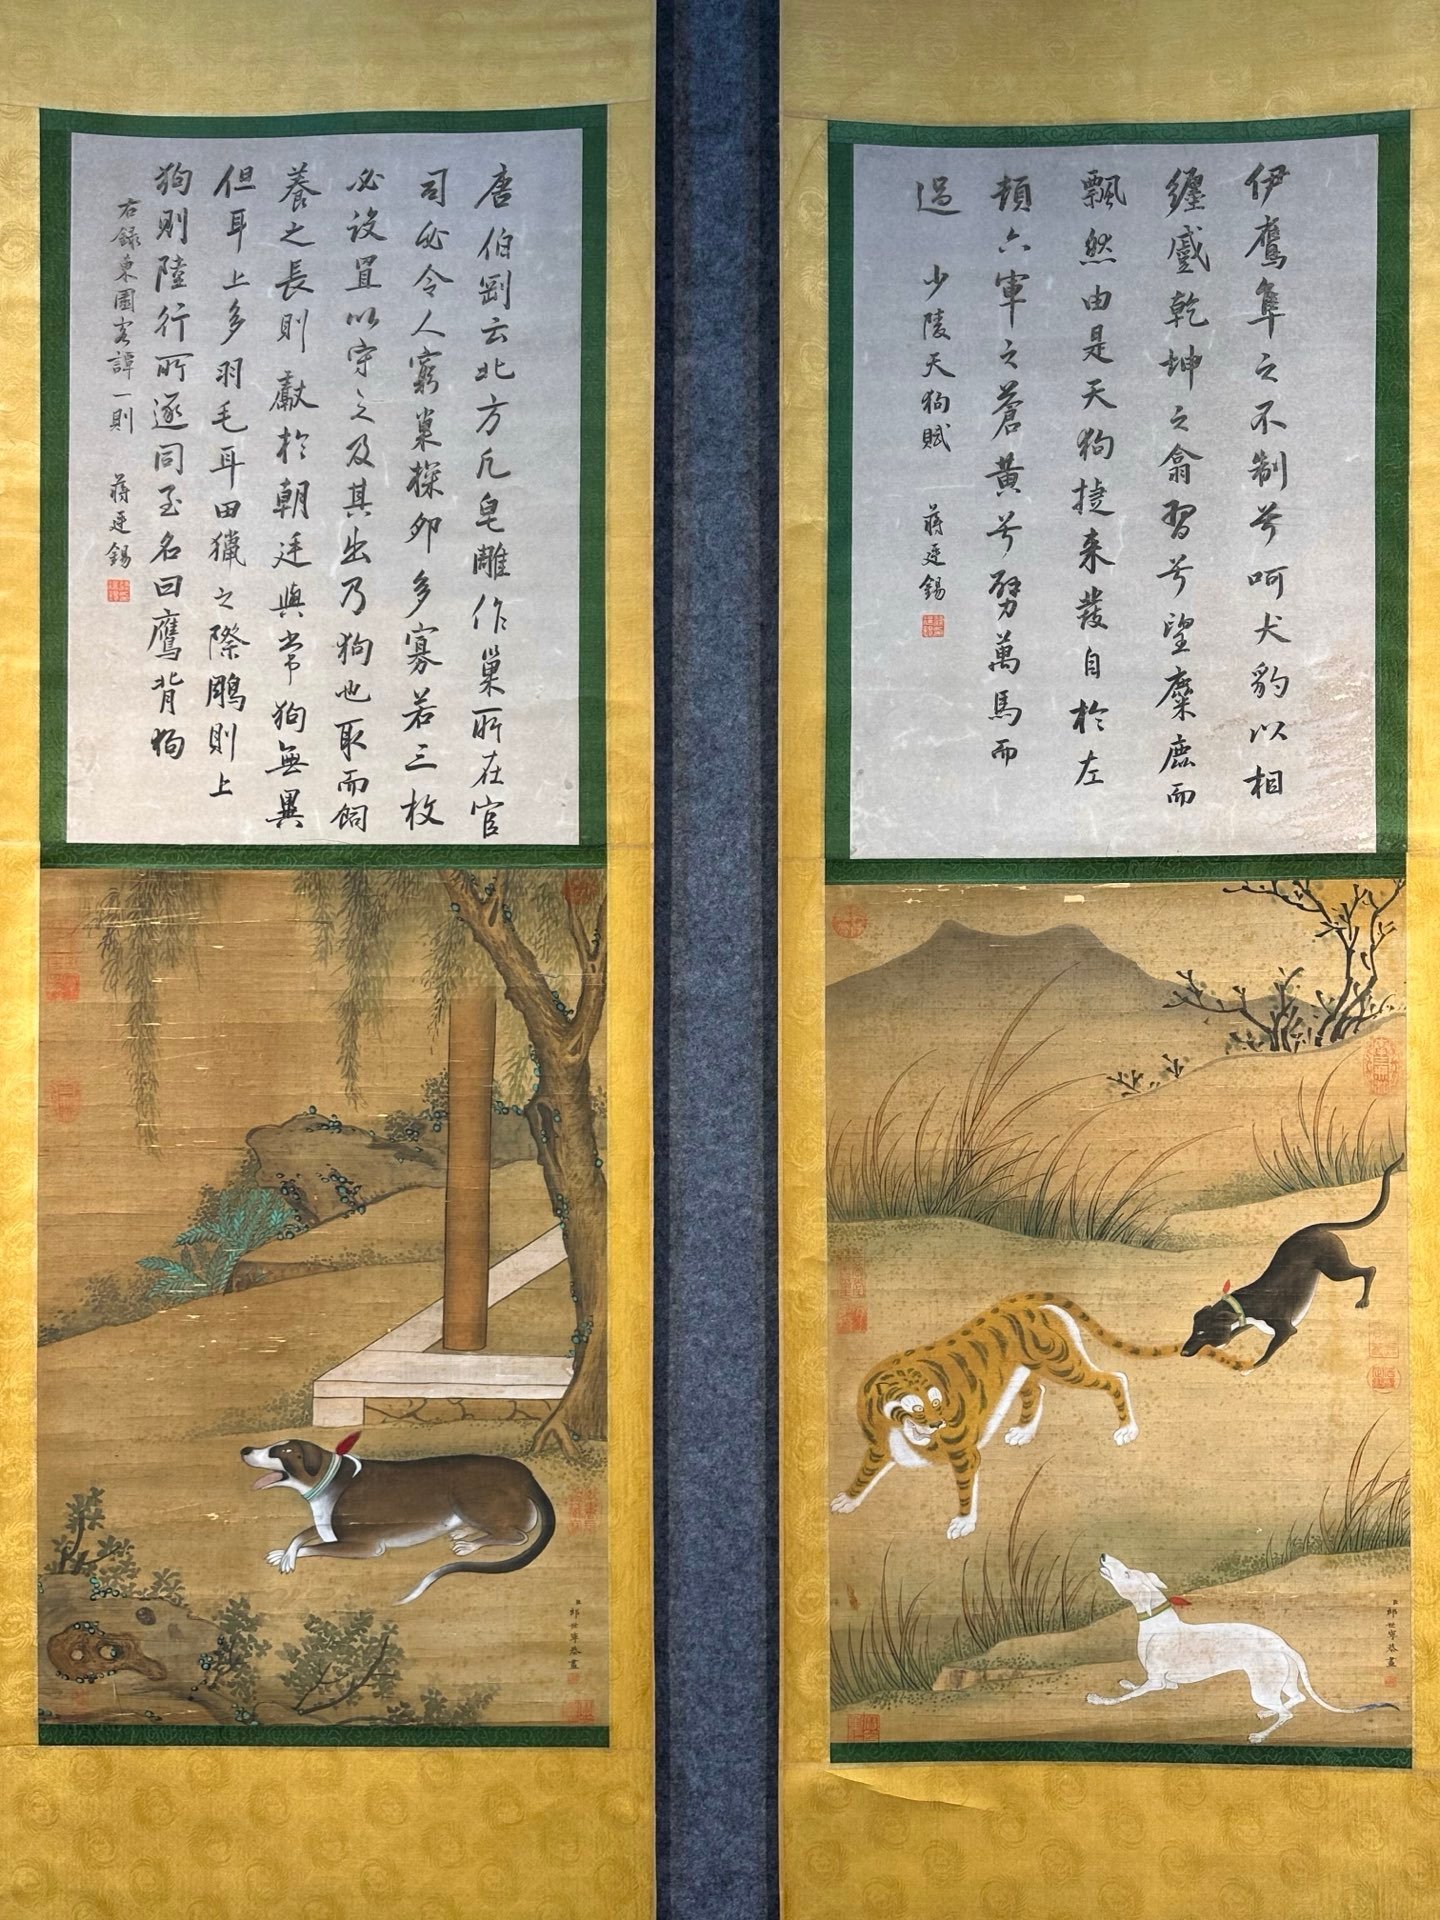 伊鷹隼之不制兮呵犬豹以相
纏蹙乾坤之翕習兮望麋鹿而
飄然由是天狗捷來發自於左
頓六軍之蒼黃兮劈萬馬而
過 少陵天狗賦 蔣廷錫
臣郎世寧恭畫
唐伯剛云北方凡皂雕作巢所在官
司必令人窮巢探卵多寡若三枚
必設置以守之及其出乃狗也取而飼
養之長則獻於朝廷與常狗無異
但耳上多羽毛耳田獵之際鵰則上
狗則陸行所逐同至名曰鷹背狗
右錄東園客譚一則 蔣廷錫
臣郎世寧恭畫